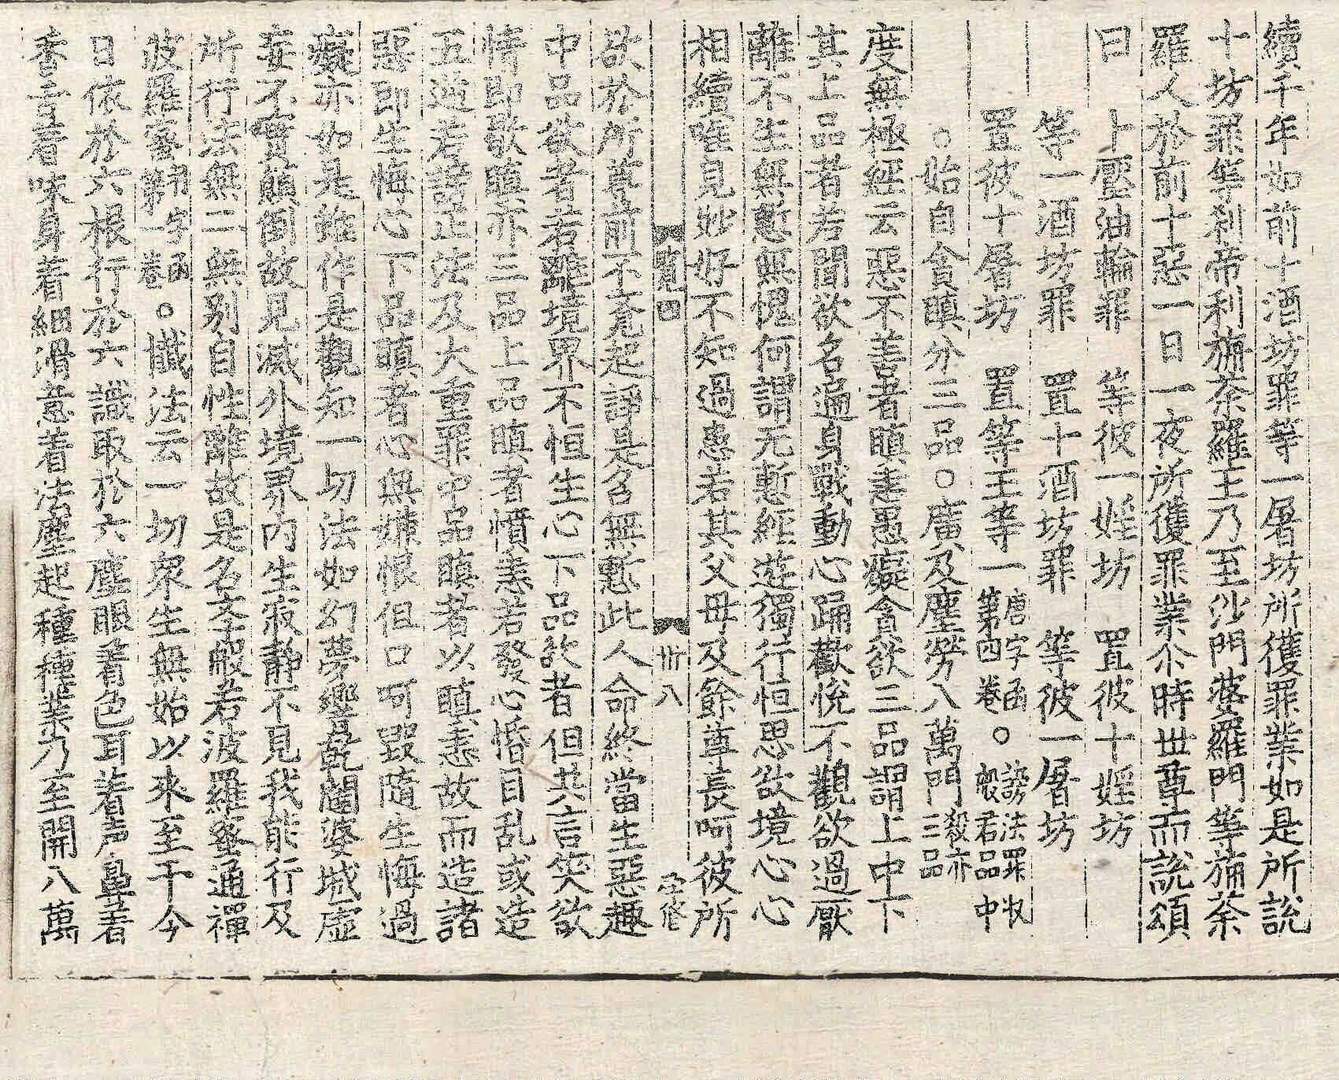 續千年如前十酒坊罪等一屠坊所獲罪業如是所說
十坊罪等刹帝利旃茶羅王乃至沙門婆羅門等旃茶
羅人於前十惡一日一夜所獲罪業尒時世尊而說頌
曰　上壓油輪罪　等彼一婬坊　置彼十婬坊
等一酒坊罪　置十酒坊罪　等彼一屠坊
置彼十屠坊　置等王等一唐字函第四卷○謗法罪収般若品中
○始自貪瞋分三品○廣及塵勞八萬門殺亦三品
度無極經云惡不善者瞋恚愚癡貪欲三品謂上中下
其上品者若聞欲名遍身戰動心踊歡悅不觀欲過厭
離不生無慙無愧何謂无慙經遊獨行恒思欲境心心
相續唯見妙好不知過患若其父母及餘尊長呵彼所
覽四　卅八
欲於所尊前不竟起諍是名無慙此人命終當生惡趣
中品欲者若離境界不恒生心下品欲者但共言笑欲
情即歇瞋亦三品上品瞋者憤恚若發心惛目乱或造
五逆若謗正法及大重罪中品瞋者以瞋恚故而造諸
惡即生悔心下品瞋者心無嫌恨但口呵毀隨生悔過
癡亦如是雖作是觀知一切法如幻夢響乾闥婆城虛
妄不實顛倒故見滅外境界內生寂靜不見我能行及
所行法無二無別自性離故是名爲般若波羅蜜通禪
波羅蜜羽字函第一卷○懺法云一切衆生無始以來至于今
日依於六根行於六識取於六塵眼著色耳著声鼻著
香舌著味身著細滑意著法塵起種種業乃至開八萬